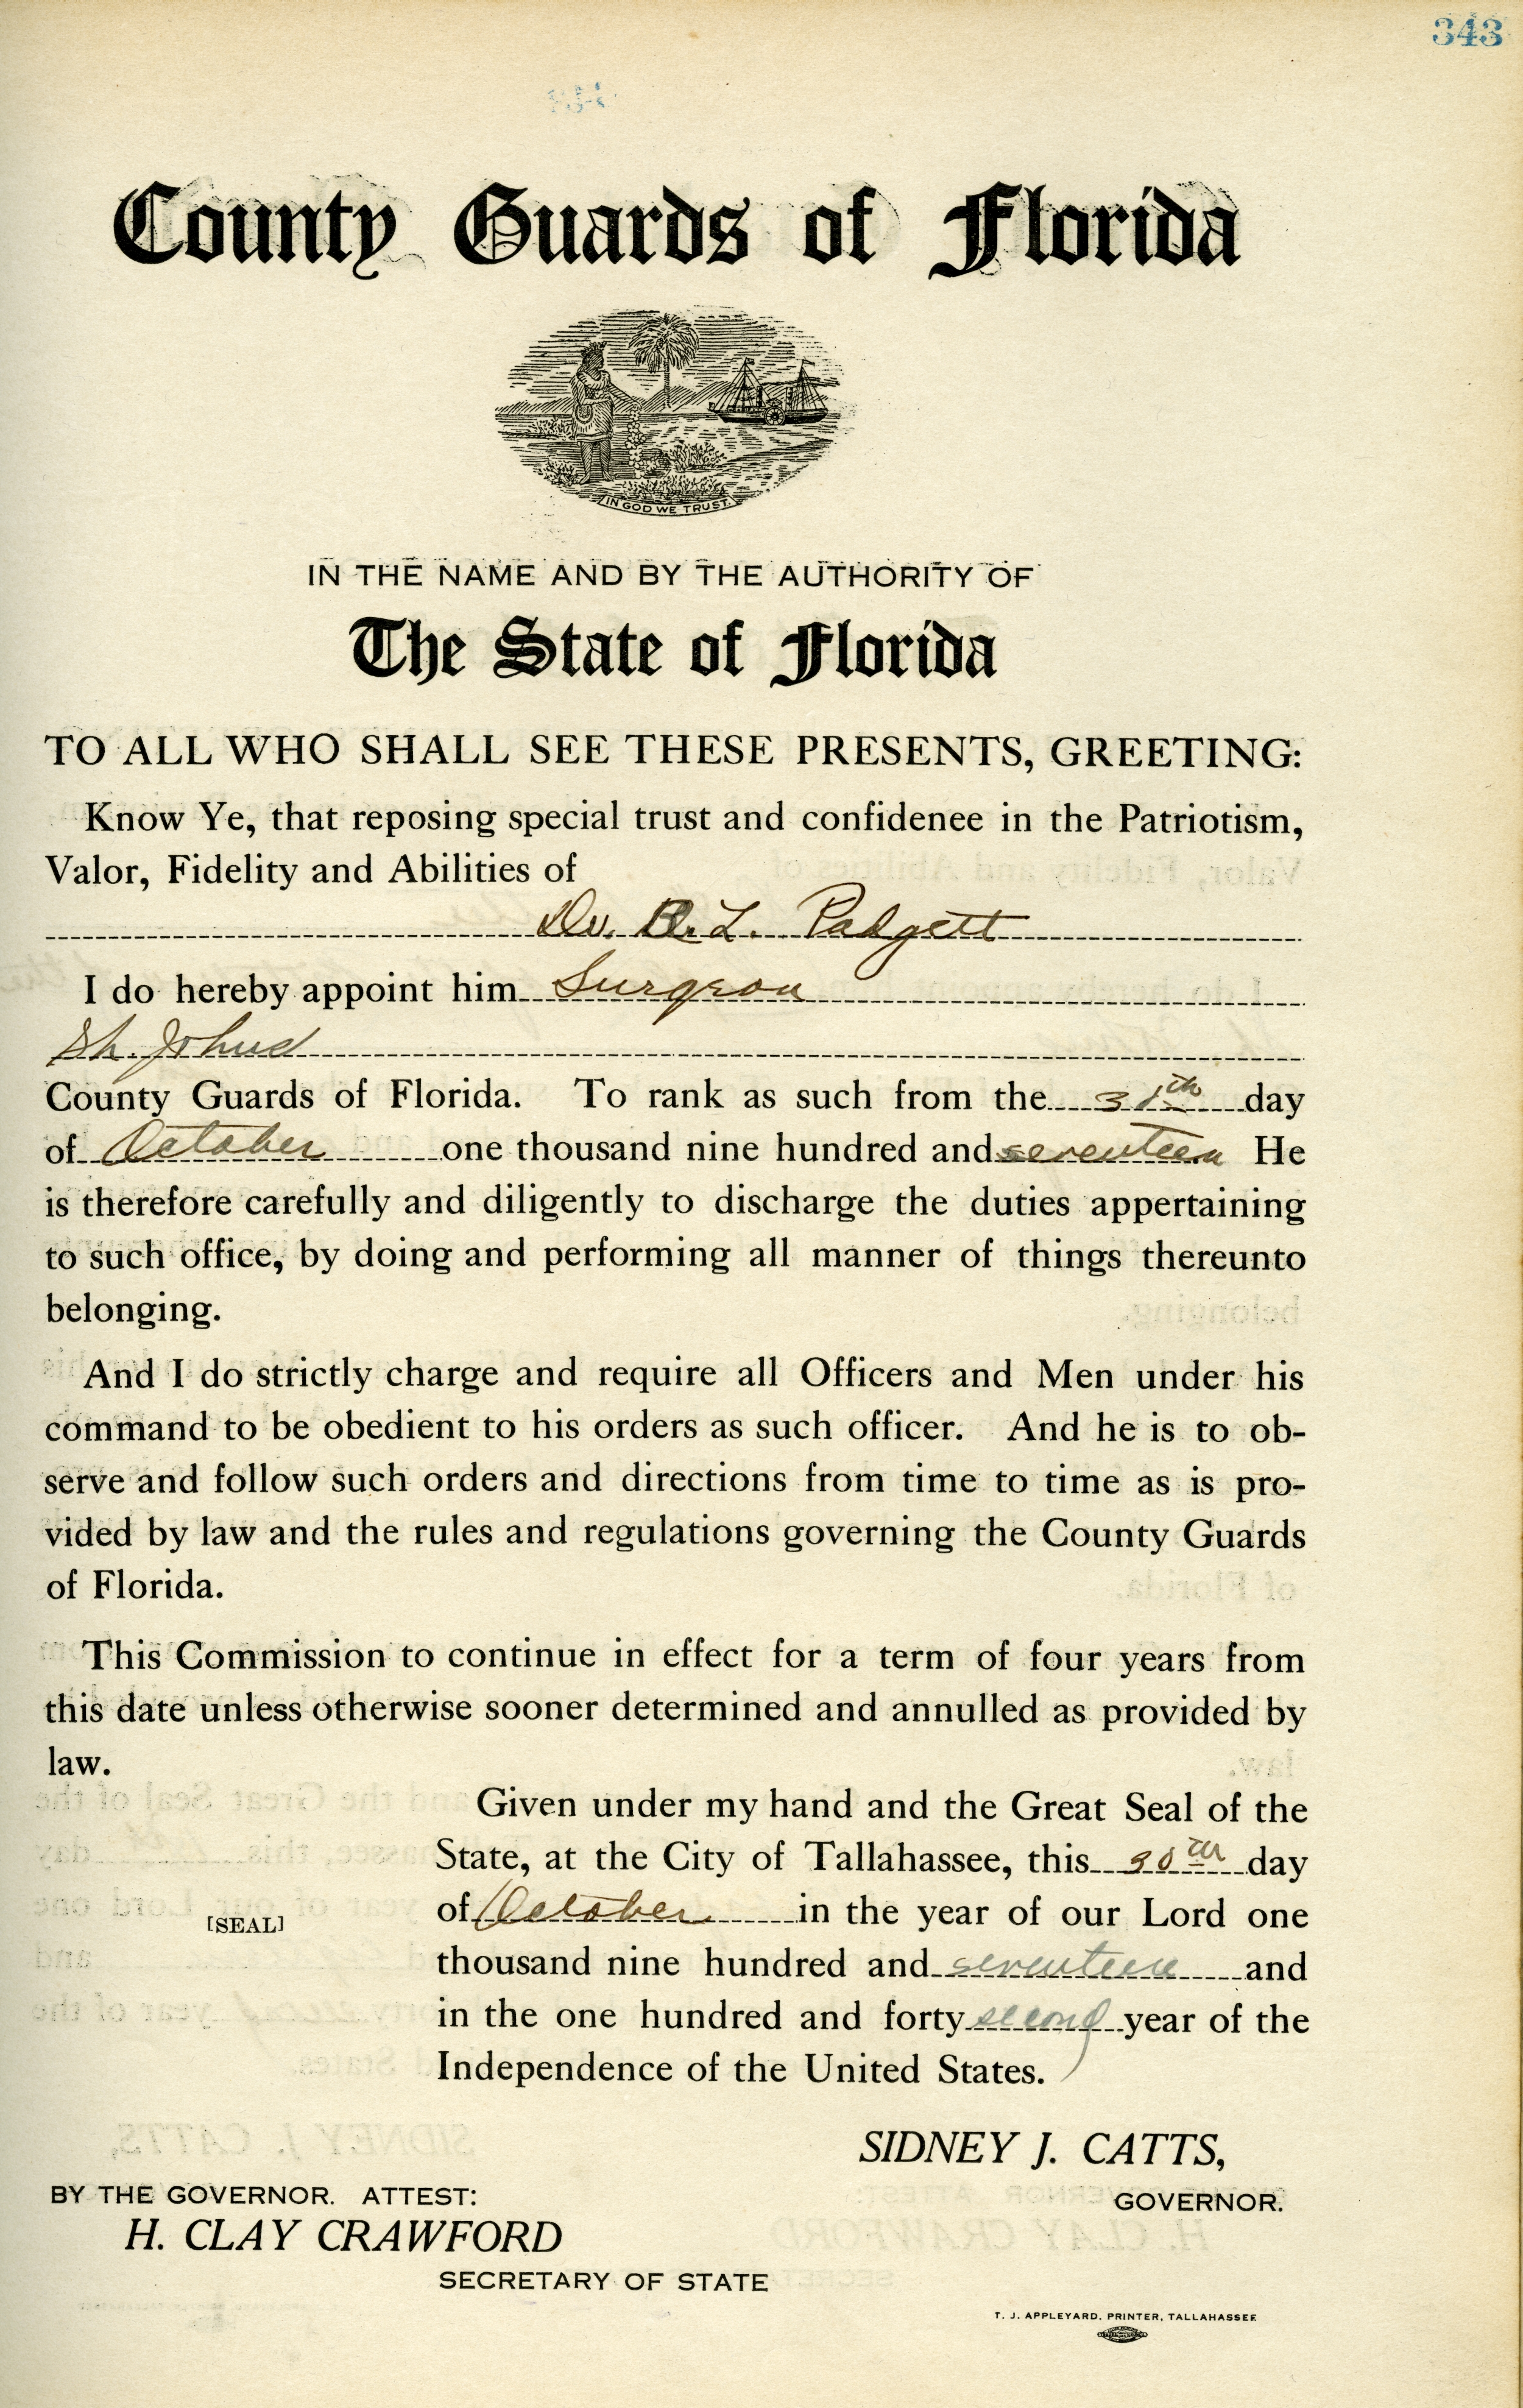 343
County Guards of Florida
IN GOD WE TRUST.
IN THE NAME AND BY THE AUTHORITY OF
The State of Florida
TO ALL WHO SHALL SEE THESE PRESENTS, GREETING:
Know Ye, that reposing special trust and confidenee in the Patriotism,
Valor, Fidelity and Abilities of
Dr. R. L. Padgett
I do hereby appoint him Surgeon
St. Johns
County Guards of Florida. To rank as such from the 31th day
of October one thousand nine hundred and seventeen He
is therefore carefully and diligently to discharge the duties appertaining
to such office, by doing and performing all manner of things thereunto
belonging.
And I do strictly charge and require all Officers and Men under his
command to be obedient to his orders as such officer. And he is to ob-
serve and follow such orders and directions from time to time as is pro-
vided by law and the rules and regulations governing the County Guards
of Florida.
This Commission to continue in effect for a term of four years from
this date unless otherwise sooner determined and annulled as provided by
law.
Given under my hand and the Great Seal of the
State, at the City of Tallahassee, this 30th day
of October in the year of our Lord one
[SEAL]
thousand nine hundred and seventeen and
in the one hundred and forty second year of the
Independence of the United States.
SIDNEY J. CATTS,
GOVERNOR.
BY THE GOVERNOR. ATTEST:
H. CLAY CRAWFORD
SECRETARY OF STATE
T. J. APPLEYARD, PRINTER, TALLAHASSEE